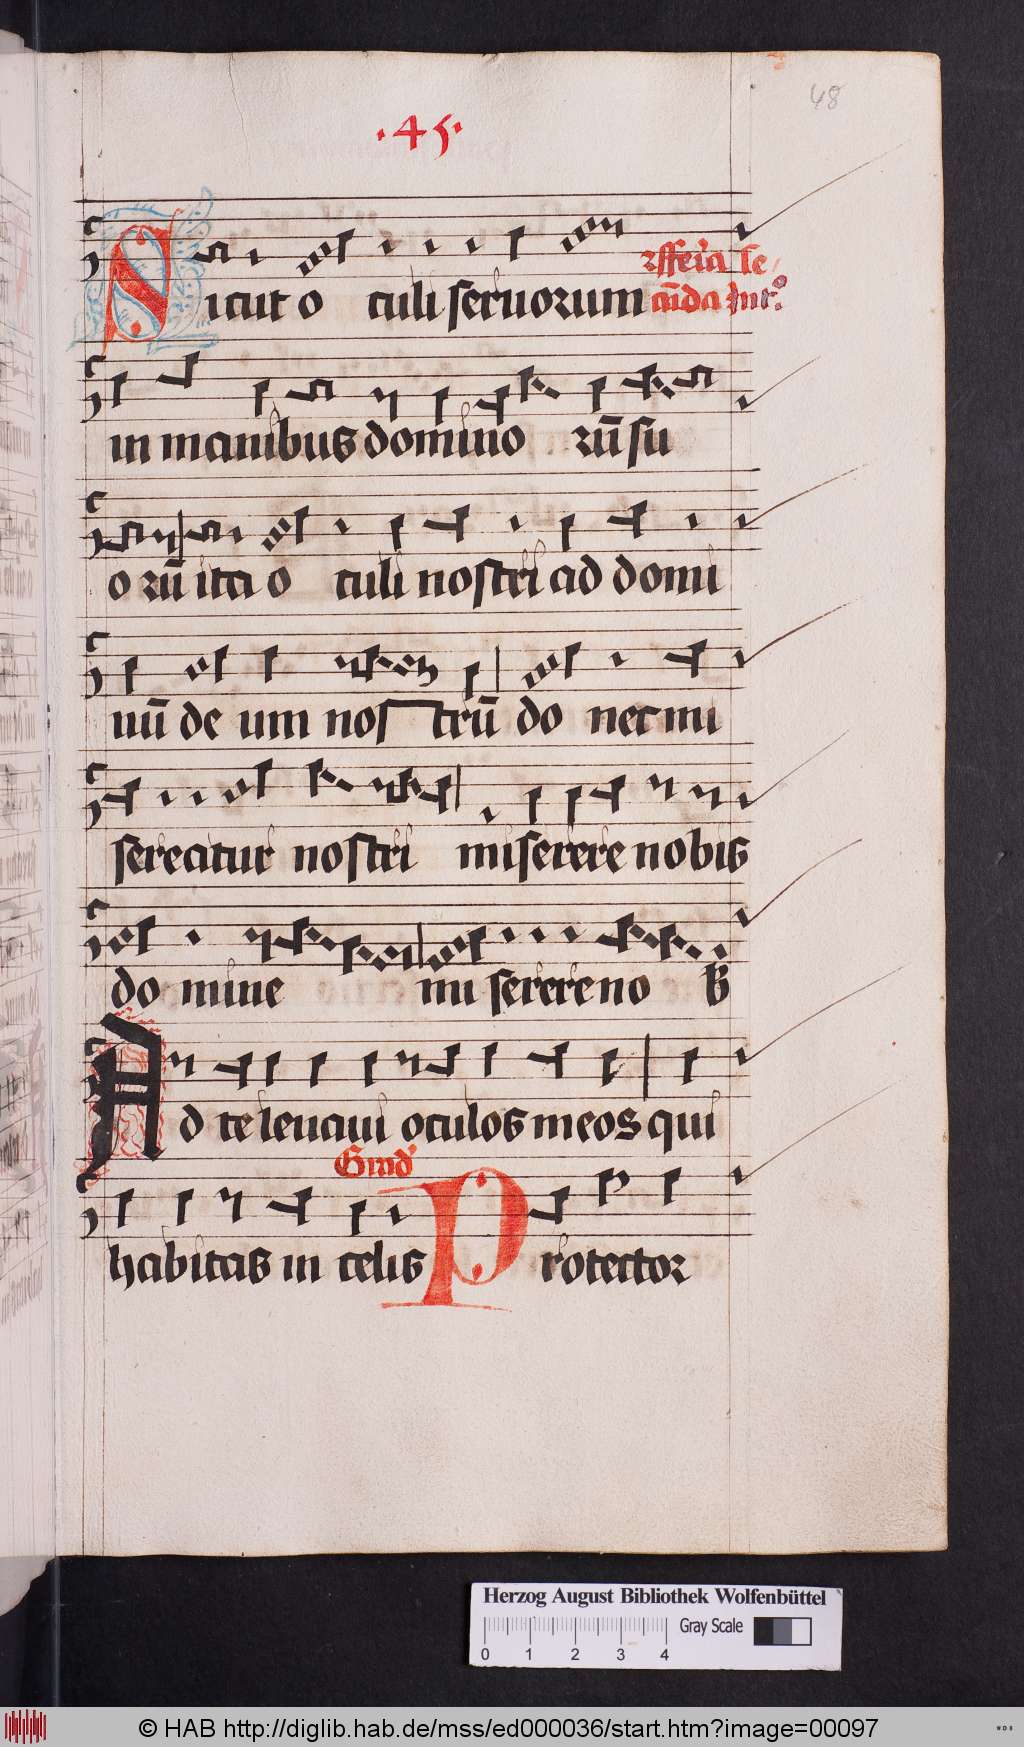 48
·45·
Sicut o culi seruorum
fferia se
cūda Intr̊
in manibus domino rū su
o rū ita o culi nostri ad domi
nū de um nos trū do nec mi
sereatur nostri miserere nobis
do mine mi serere no b
Ad te leuaui oculos meos qui
Grad̓
habitas in celis Protector
Herzog August Bibliothek Wolfenbüttel
Gray Scale
0 1 2 3 4
© HAB http://diglib.hab.de/mss/ed000036/start.htm?image=00097